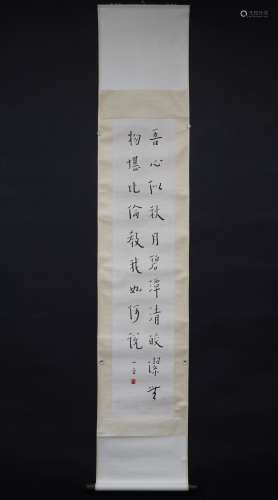 吾心似秋月碧潭清皎潔無
物堪比倫教我如何說
一音